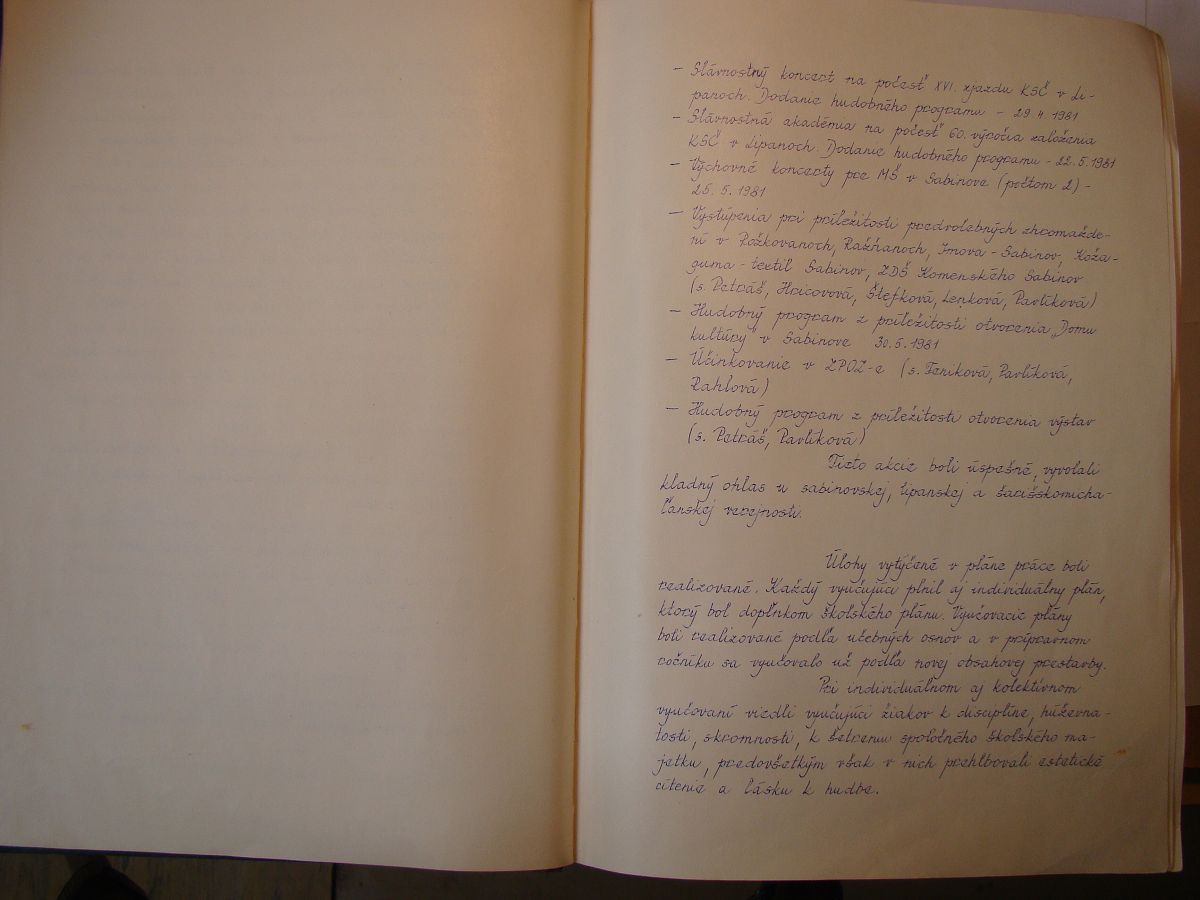 – Slávnostný koncert na počesť XVI. zjazdu KSČ v Li-
panoch. Dodanie hudobného programu – 29. 4. 1981
– Slávnostná akadémia na počesť 60. výročia založenia
KSČ v Lipanoch. Dodanie hudobného programu - 22. 5. 1981
– Výchovné koncerty pre MŠ v Sabinove (počtom 2) -
25. 5. 1981
– Vystúpenia pri príležitosti predvolebných zhromažde-
ní v Rožkovanoch, Ražňanoch, Imova - Sabinov, Koža-
guma - textil Sabinov, ZDŠ Komenského Sabinov
(s. Petráš, Hricovová, Štefková, Lenková, Pavlíková)
– Hudobný program z príležitosti otvorenia „Domu
kultúry" v Sabinove 30. 5. 1981
– Účinkovanie v ZPOZ-e (s. Feniková, Pavlíková,
Rahlová)
– Hudobný program z príležitosti otvorenia výstav
(s. Petráš, Pavlíková)
Tieto akcie boli úspešné, vyvolali
kladný ohlas u sabinovskej, lipanskej a šarišskomicha-
ľanskej verejnosti.
Úlohy vytýčené v pláne práce boli
realizované. Každý vyučujúci plnil aj individuálny plán,
ktorý bol doplnkom školského plánu. Vyučovacie plány
boli realizované podľa učebných osnov a v prípravnom
ročníku sa vyučovalo už podľa novej obsahovej prestavby.
Pri individuálnom aj kolektívnom
vyučovaní viedli vyučujúci žiakov k disciplíne, húževna-
tosti, skromnosti, k šetreniu spoločného školského ma-
jetku, predovšetkým však v nich prehlbovali estetické
cítenie a lásku k hudbe.